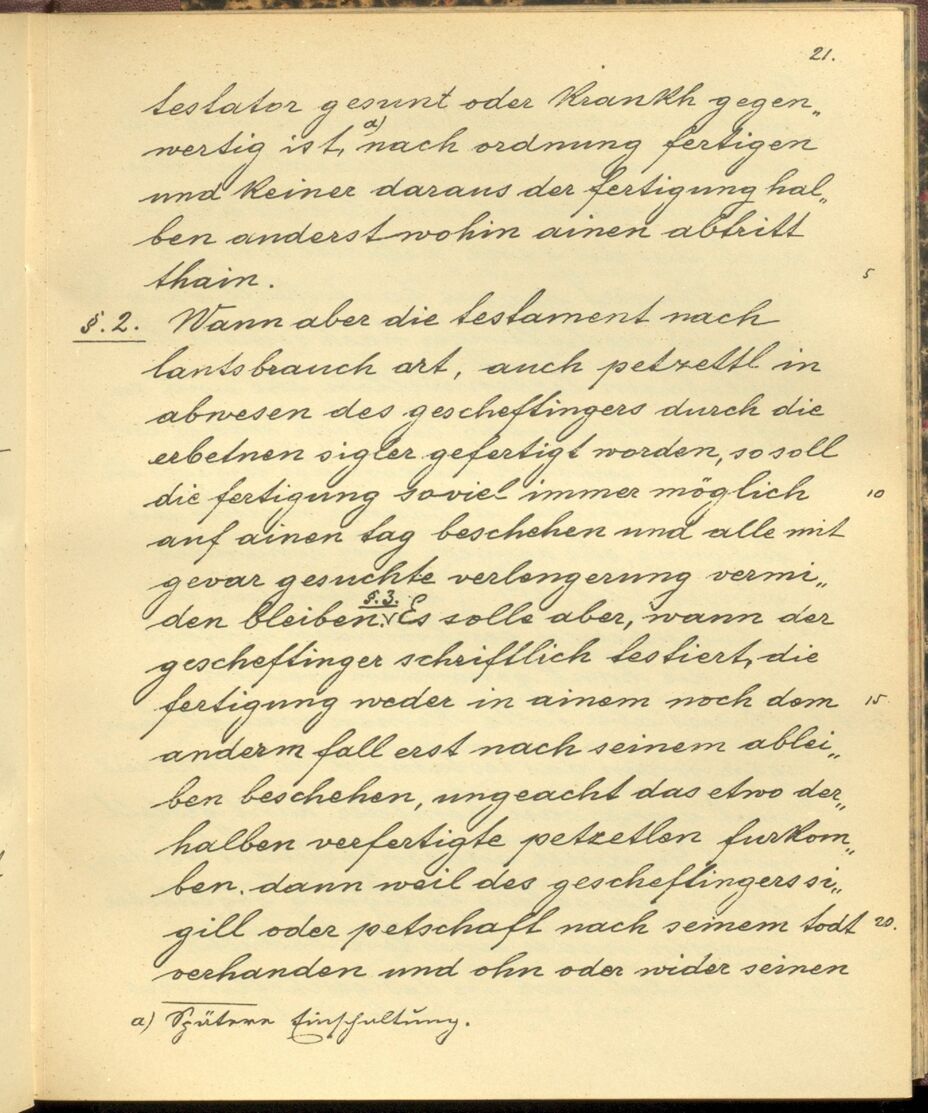 21.
testator gesunt oder krankh gegen„
wertig ist, a) nach ordnung fertigen
und keiner daraus der fertigung hal„
ben anderst wohin ainen abtritt
thain. 5
§. 2. Wann aber die testament nach
lantsbrauch art, auch petzettl in
abwesen des gescheftingers durch die
erbetnen sigler gefertigt worden, so soll
die fertigung soviel immer möglich 10
auf ainen tag beschehen und alle mit
gevar gesuchte verlengerung vermi„
den bleiben. §. 3. Es solle aber, wann der
gescheftinger schriftlich testiert, die
fertigung weder in ainem noch dem 15
anderm fall erst nach seinem ablei„
ben beschehen, ungeacht das etwo der„
halben verfertigte petzetlen furkom„
ben. dann weil des gescheftingers si„
gill oder petschaft nach seinem todt 20.
verhanden und ohn oder wider seinen
a) Spätere Einschaltung.